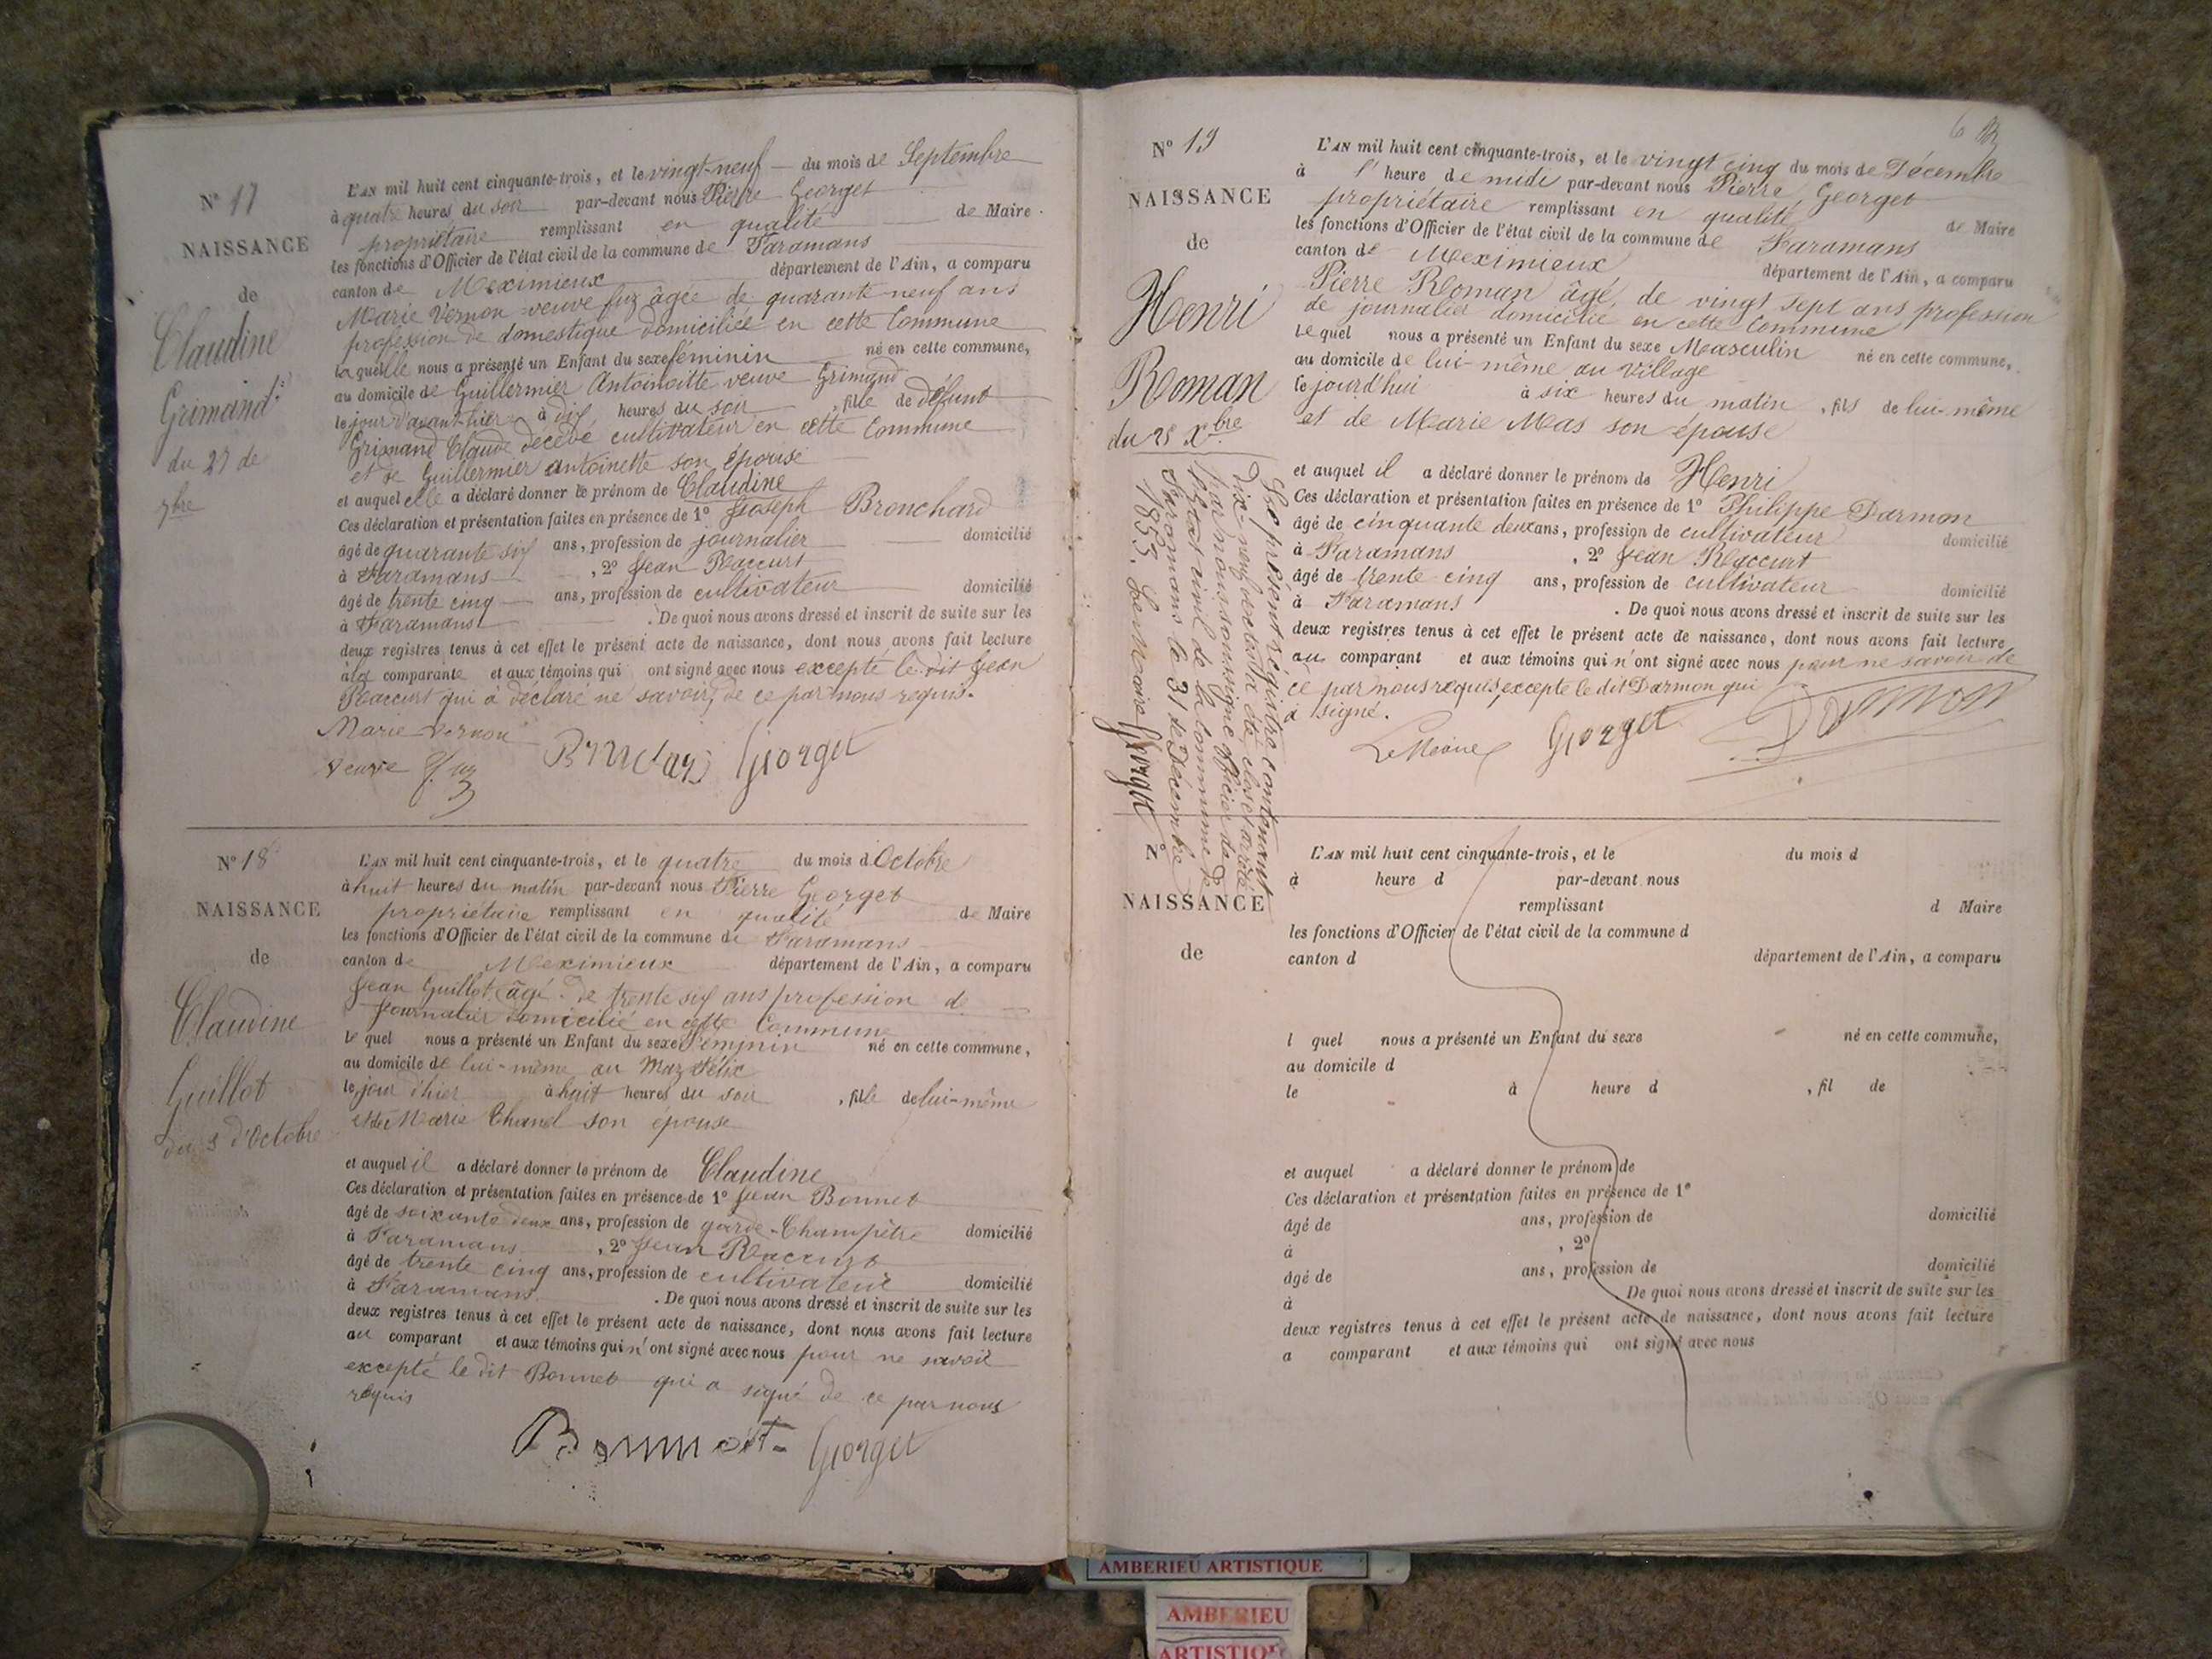 N° 17
NAISSANCE
de
Claudine
Grimand
du 27 de
7bre
L'AN mil huit cent cinquante-trois, et le vingt-neuf du mois de Septembre
à quatre heures du soir par-devant nous Pierre Georget
propriétaire remplissant en qualité de Maire
les fonctions d'Officier de l'état civil de la commune de Faramans
canton de Meximieux département de l'Ain, a comparu
Marie Vernon veuve fuz âgée de quarante neuf ans
profession de domestique domiciliée en cette Commune
laquelle nous a présenté un Enfant du sexe féminin né en cette commune,
au domicile de Guillermier Antoinette veuve Grimand
le jour d'avant-hier à dix heures du soir, fille de défunt
Grimand Claude décédé cultivateur en cette Commune
et de Guillermier Antoinette son épouse
et auquel elle a déclaré donner le prénom de Claudine
Ces déclaration et présentation faites en présence de 1° Joseph Bronchard
âgé de quarante six ans, profession de journalier domicilié
à Faramans, 2° Jean Reaccurt
âgé de trente cinq ans, profession de cultivateur domicilié
à Faramans. De quoi nous avons dressé et inscrit de suite sur les
deux registres tenus à cet effet le présent acte de naissance, dont nous avons fait lecture
à la comparante et aux témoins qui ont signé avec nous excepté le dit Jean
Reaccurt qui à déclaré ne savoir, de ce par nous requis.
Marie Vernon
veuve fuz Georget
N° 18
NAISSANCE
de
Claudine
Guillot
du 3 d'Octobre
L'AN mil huit cent cinquante-trois, et le quatre du mois d'Octobre
à huit heures du matin par-devant nous Pierre Georget
propriétaire remplissant en qualité de Maire
les fonctions d'Officier de l'état civil de la commune de Faramans
canton de Meximieux département de l'Ain, a comparu
Jean Guillot, âgé de trente six ans profession de
journalier domicilié en cette Commune
le quel nous a présenté un Enfant du sexe Féminin né en cette commune,
au domicile de lui-même au Maz Félix
le jour d'hier à huit heures du soir, fille de lui-même
et de Marie Chanel son épouse
et auquel il a déclaré donner le prénom de Claudine
Ces déclaration et présentation faites en présence de 1° Jean Bonnet
âgé de soixante deux ans, profession de garde-Champêtre domicilié
à Faramans, 2° Jean Reaccurt
âgé de trente cinq ans, profession de cultivateur domicilié
à Faramans. De quoi nous avons dressé et inscrit de suite sur les
deux registres tenus à cet effet le présent acte de naissance, dont nous avons fait lecture
au comparant et aux témoins qui n'ont signé avec nous pour ne savoir
excepté le dit Bonnet qui a signé de ce par nous
requis
Bonnet Georget
6
N° 19
NAISSANCE
de
Henri
Roman
du 25 Xbre
L'AN mil huit cent cinquante-trois, et le vingt cinq du mois de Décembre
à l'heure de midi par-devant nous Pierre Georget
propriétaire remplissant en qualité de Maire
les fonctions d'Officier de l'état civil de la commune de Faramans
canton de Meximieux département de l'Ain, a comparu
Pierre Roman âgé, de vingt sept ans profession
de journalier domicilié en cette Commune
le quel nous a présenté un Enfant du sexe Masculin né en cette commune,
au domicile de lui-même au Village
le jourd'hui à six heures du matin, fils de lui-même
et de Marie Mas son épouse
et auquel il a déclaré donner le prénom de Henri
Ces déclaration et présentation faites en présence de 1° Philippe Darmon
âgé de cinquante deux ans, profession de cultivateur domicilié
à Faramans, 2° Jean Reaccurt
âgé de trente cinq ans, profession de cultivateur domicilié
à Faramans. De quoi nous avons dressé et inscrit de suite sur les
deux registres tenus à cet effet le présent acte de naissance, dont nous avons fait lecture
au comparant et aux témoins qui n'ont signé avec nous pour ne savoir de
ce par nous requis, excepté le dit Darmon qui
à signé.
Le Maire Georget Darmon
Le présent régistre contenant
Dix-neuf actes a été clos et arrêté
par nous soussigné officier de
l'état civil de la Commune de
Faramans le 31 de Décembre
1853. Le Maire Georget
N°
NAISSANCE
de
L'AN mil huit cent cinquante-trois, et le du mois d
à heure d par-devant nous
remplissant d Maire
les fonctions d'Officier de l'état civil de la commune d
canton d département de l'Ain, a comparu
l quel nous a présenté un Enfant du sexe né en cette commune,
au domicile d
le à heure d , fil de
et auquel a déclaré donner le prénom de
Ces déclaration et présentation faites en présence de 1°
âgé de ans, profession de domicilié
à , 2°
âgé de ans, profession de domicilié
à . De quoi nous avons dressé et inscrit de suite sur les
deux registres tenus à cet effet le présent acte de naissance, dont nous avons fait lecture
a comparant et aux témoins qui ont signé avec nous
AMBERIEU ARTISTIQUE
AMBERIEU
ARTISTIQU